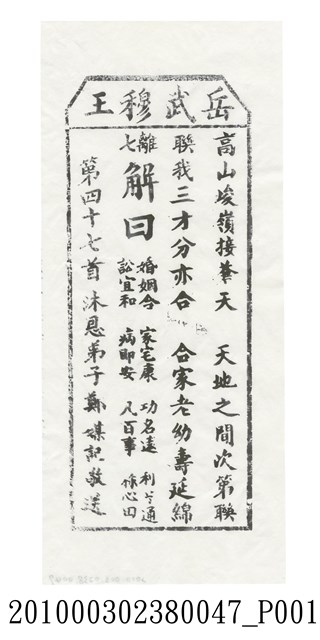 岳武穆王
高山峻嶺接華天　天地之間次第聯
聯我三才分亦合　合家老幼壽延綿
離七
解曰
婚姻合　家宅康　功名遠　利亨通
訟宜和　病即安　凡百事　修心田
第四十七首沐恩弟子鄭媒記敬送
201000302380047_P001